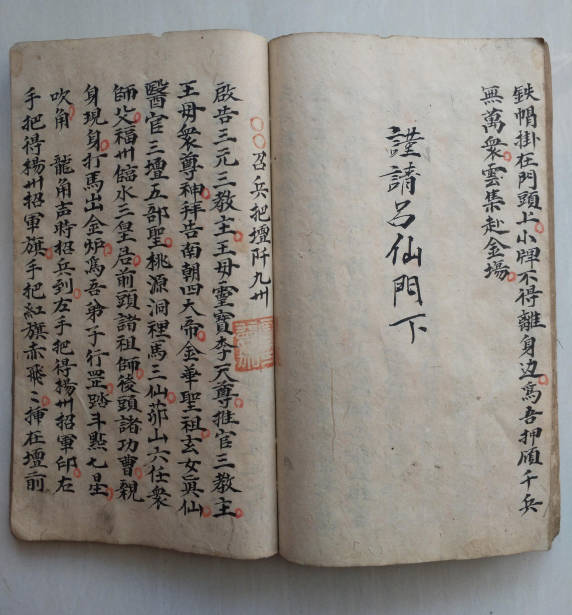 鉄帽掛在門頭上小牌不得離身边為吾押頋千兵
無萬衆雲集赴金塲
謹請呂仙門下
○○召兵把壇阡九州
啟告三元三教主王毋靈寶李天尊推官三教主
王毋衆尊神拜告南朝四大帝金華聖祖玄女眞仙
醫官三壇五郎聖桃源洞裡馬三仙茆山六任衆
師父福州臨水三皇居前頭諸祖師後頭諸功曹親
身現身打馬出金炉為吾弟子行罡踏斗㸃七星
吹角龍角声時招兵到左手把得揚州招軍印右
手把得揚州招軍旗手把紅旗赤飛〻揷在壇前